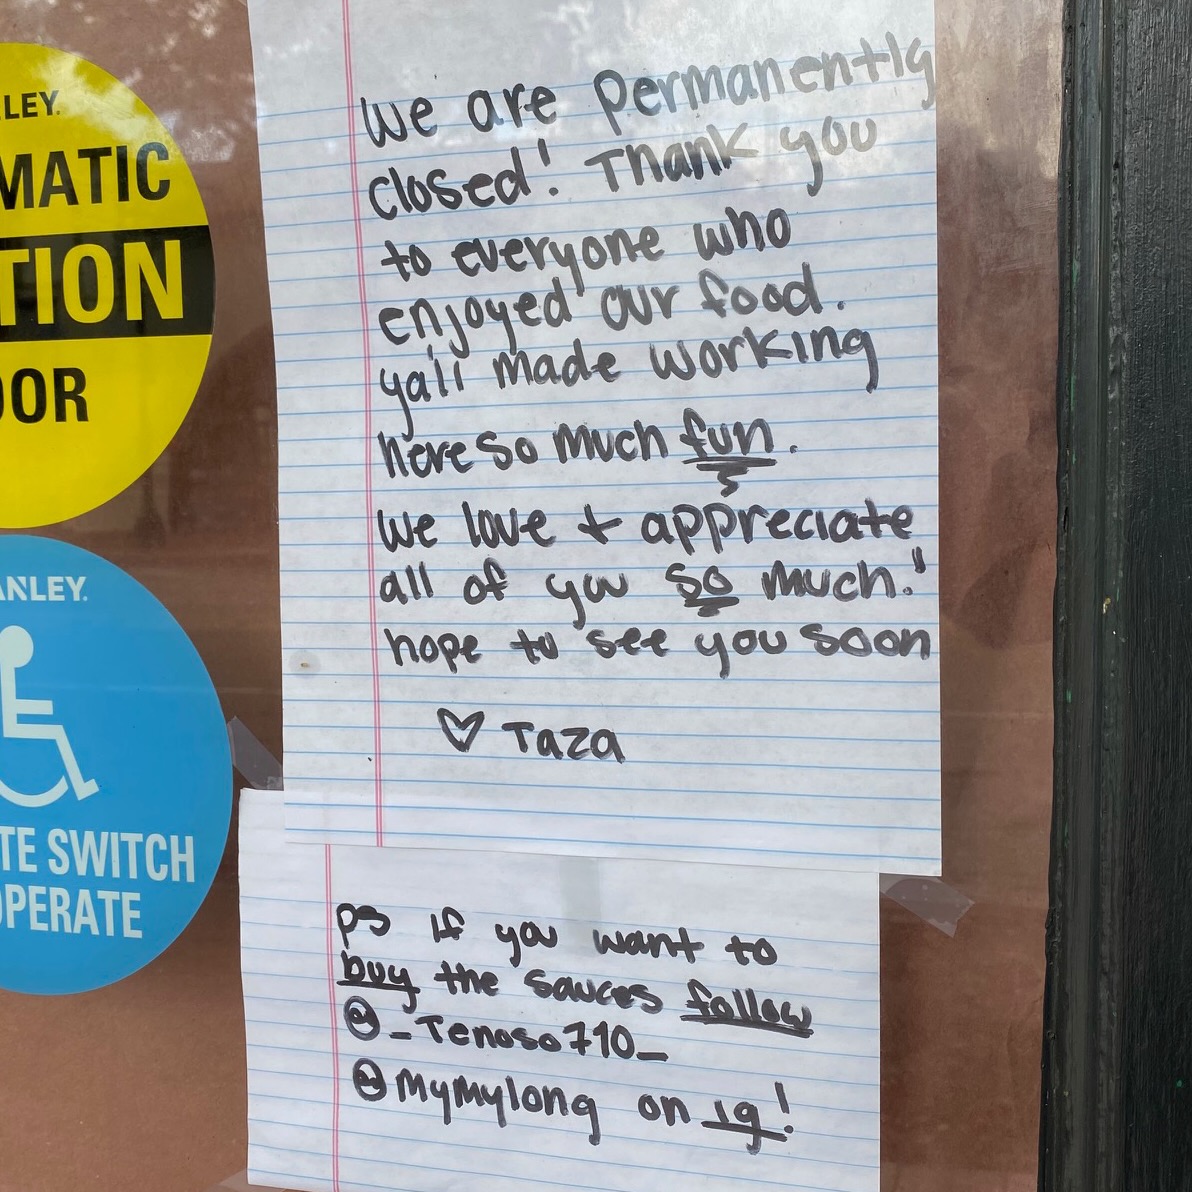 LEY.
MATIC
TION
OOR
ANLEY.
TE SWITCH
OPERATE
We are permanently
closed! Thank you
to everyone who
enjoyed our food.
ya'll made working
here so much fun.
We love + appreciate
all of you so much!
hope to see you soon
♡ Taza
PS if you want to
buy the sauces follow
@_Tenoso710_
@Mymylong on ig!